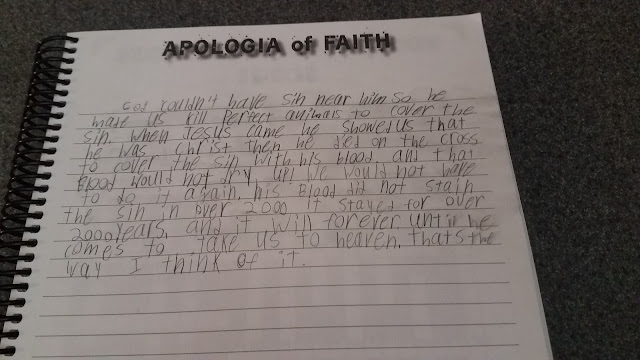 APOLOGIA of FAITH
God couldn't have sin near him so he
made us kill perfect animals to cover the
sin. When Jesus came he showed us that
he was Christ then he died on the cross
to cover the sin with his blood. and that
Blood would not dry. we would not have
to do it again. his Blood did not stain
the sin in over 2000 it stayed for over
2000 years. and it will forever. until he
comes to take us to heaven. thats the
way I think of it.